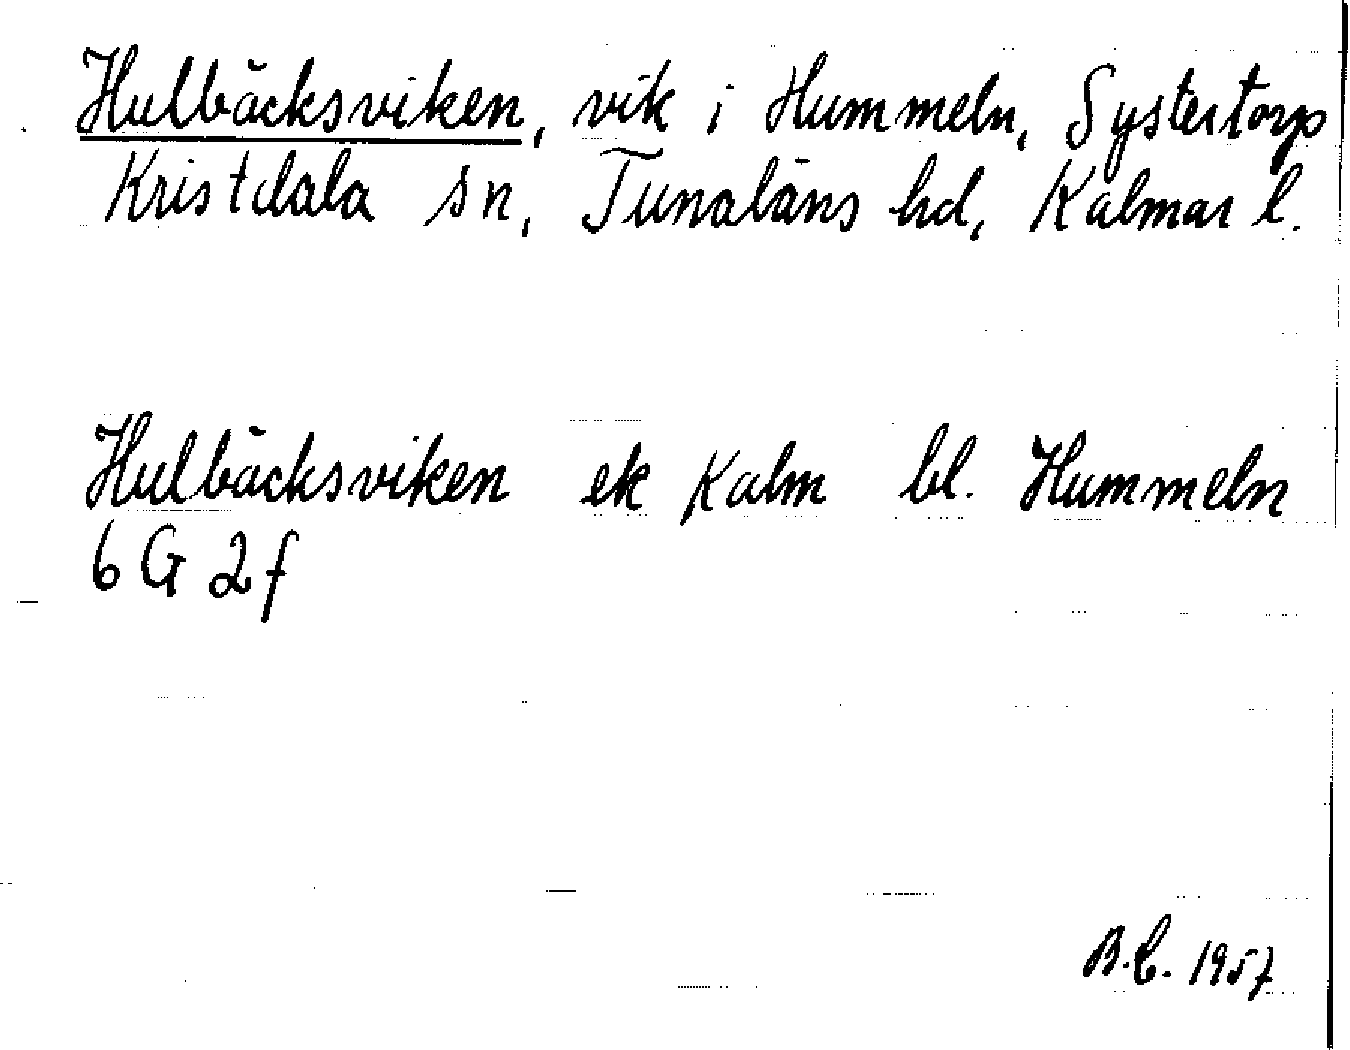 Hulbäcksviken, vik i Hummeln, Systertorp
Kristdala sn, Tunaläns hd, Kalmar l.
Hulbäcksviken ek Kalm bl. Hummeln
6 G 2 f
B.C. 1957